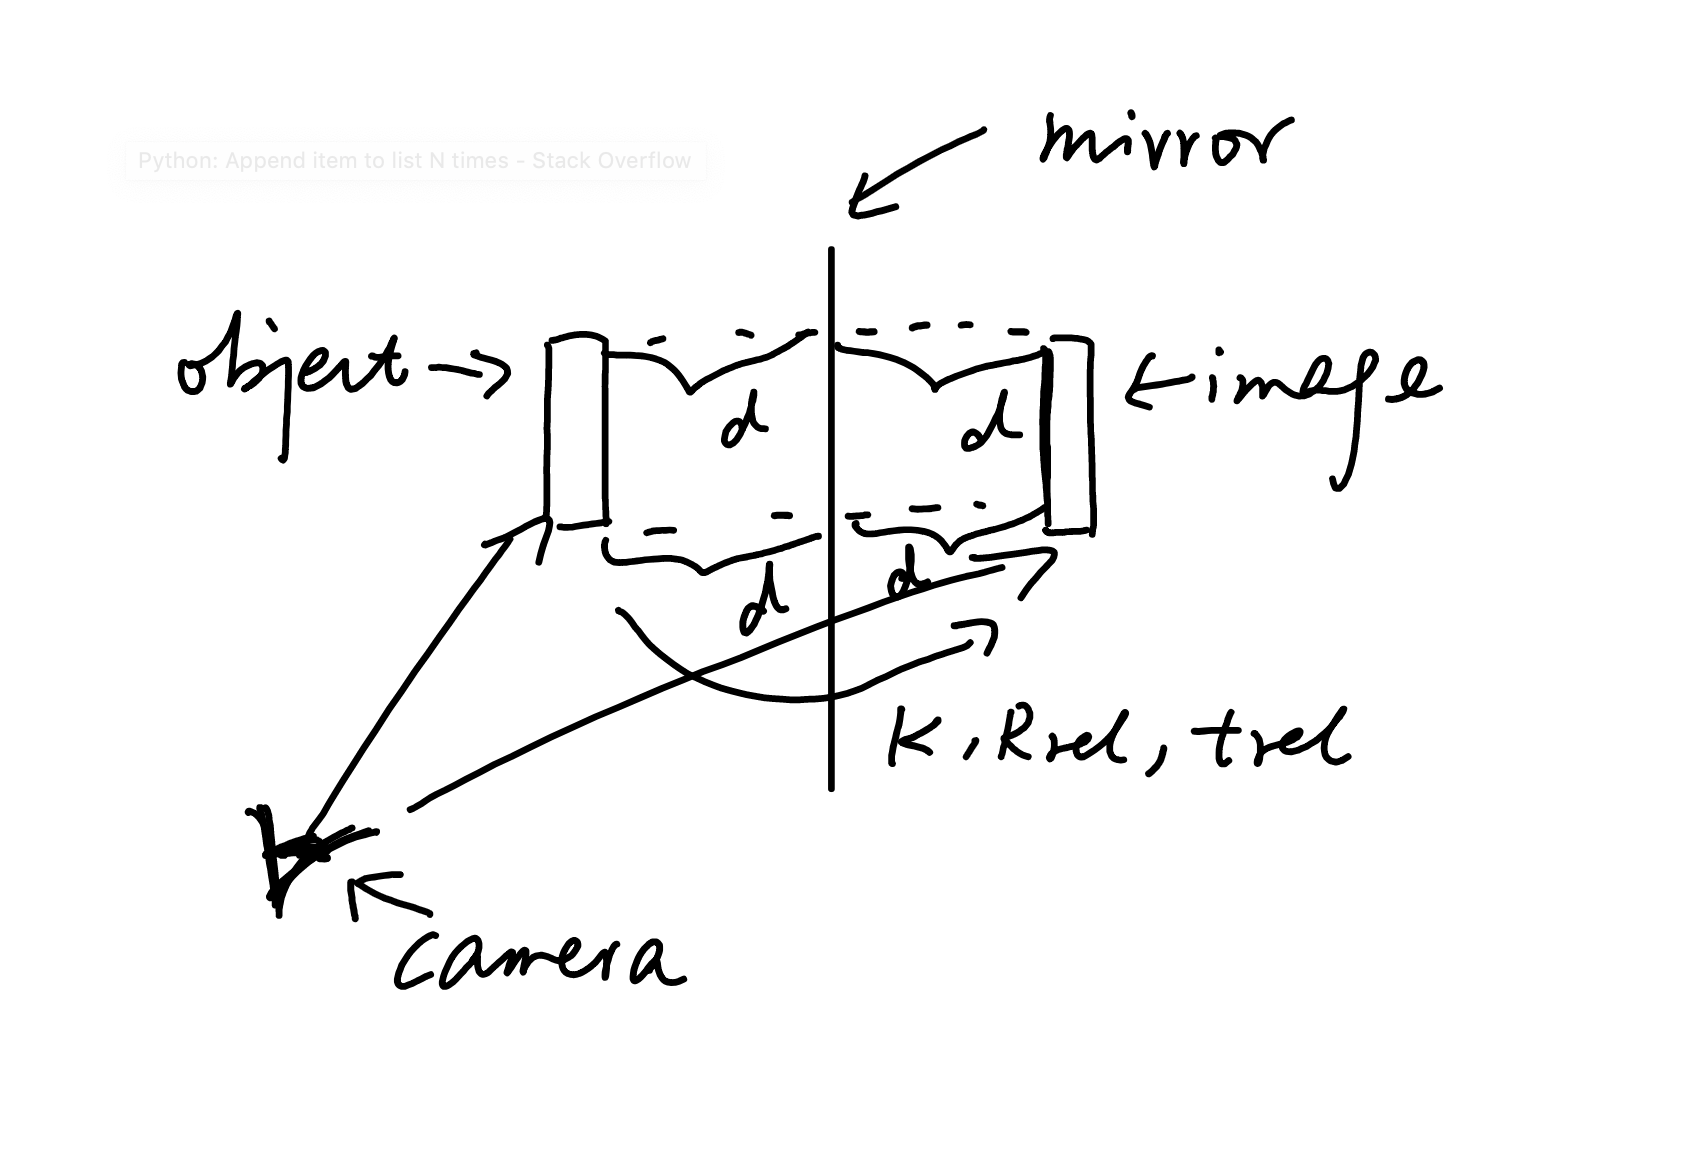 mirror
Python: Append item to list N times - Stack Overflow
object
image
d
d
d
d
K, Rrel, trel
camera